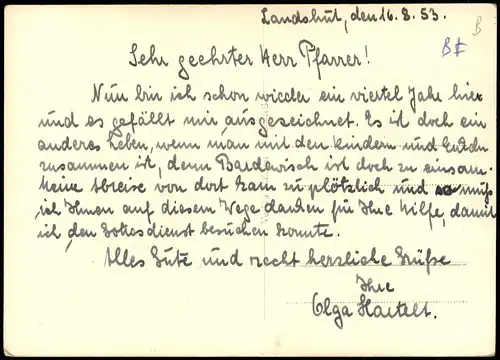 Landshut, den 16.8.53.
B
B
Sehr geehrter Herr Pfarrer!
Nun bin ich schon wieder ein viertel Jahr hier
und es gefällt mir ausgezeichnet. Es ist doch ein
anderes Leben, wenn man mit den Kindern und Enkeln
zusammen ist, denn Bardewisch ist doch zu einsam.
Meine Abreise von dort kam zu plötzlich und so muß
ich Ihnen auf diesem Wege danken für Ihre Hilfe, damit
ich den Gottesdienst besuchen konnte.
Alles Gute und recht herzliche Grüße
Ihre
Olga